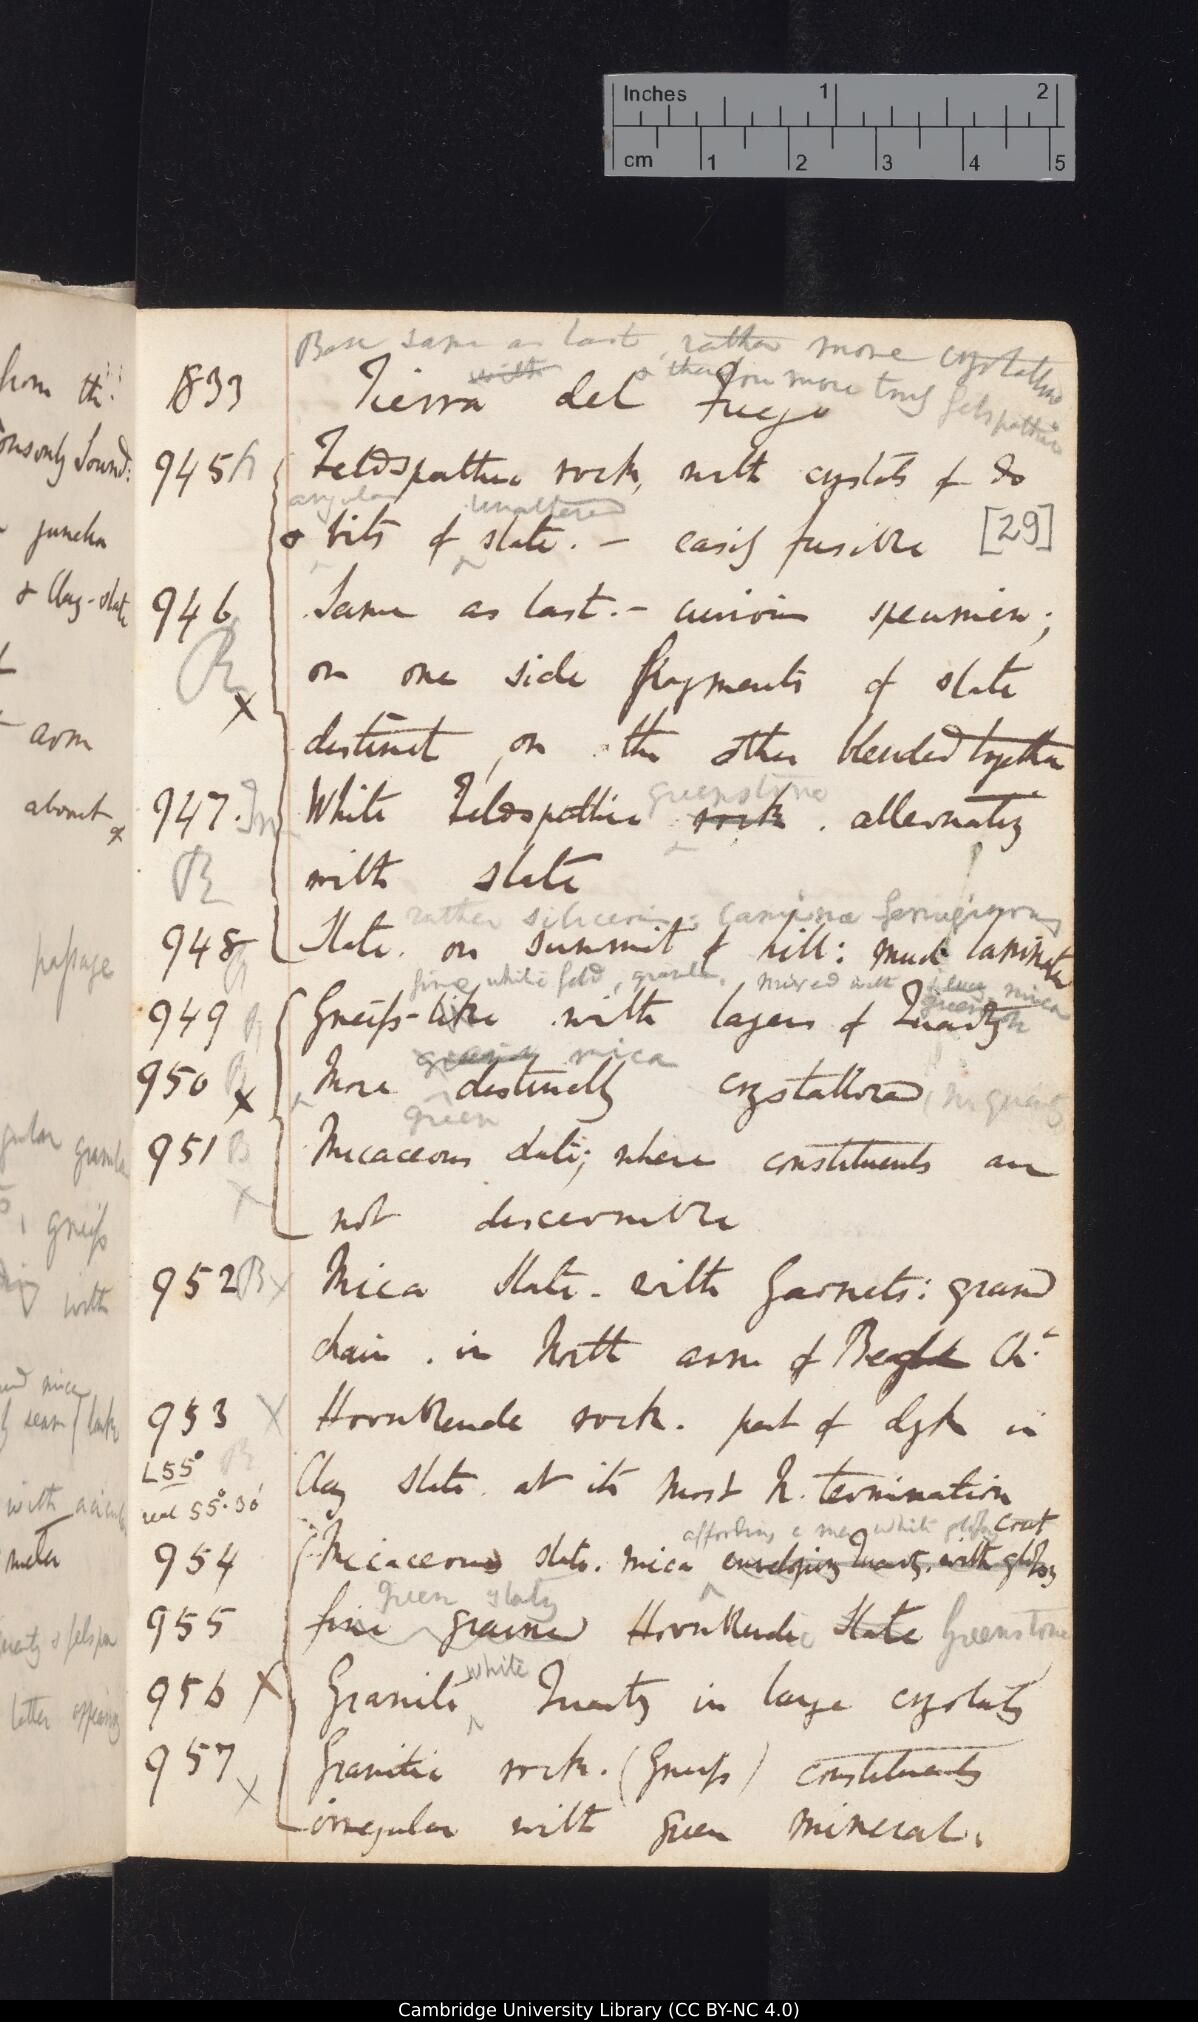 Inches 1 2
cm 1 2 3 4 5
Base same as last, rather more crystalline
with & therefore more truly felspathic
1833 Tierra del Fuego
945 Feldspathic rock, with crystals of Do
angular unaltered
& bits of slate. — easily fusible [29]
946 Same as last. — curious specimen;
on one side fragments of slate
distinct, on the other blended together
greenstone
947. White Feldspathic rock. alternating
with slate
rather siliceous: laminae ferruginous
948 Slate. on summit of hill: much laminated
fine white feld, granular, mixed with mica
949 Gneiss-like with layers of Quartz
green mica
950 More distinctly crystallized, no quartz
green
951 B Micaceous slate; where constituents are
not discernible
952 B Mica Slate. with Garnets: grand
chain. in North arm of Beagle Ch:
953 Hornblende rock. part of dyke in
L 55° Clay slate. at its most N. termination
real 55°.30'
affording a white globule coat
954 Micaceous slate. mica enveloping Quartz. with glossy
green slaty
955 fine grained Hornblendic Slate Greenstone
white
956 Granite Quartz in large crystals
957 Granitic rock. (Gneiss) constituents
irregular with green mineral.
from the
Ponsonby Sound:
& Clay-slate
arm
about
passage
granular
gneiss
with
mica
with acicular
quartz & felspar
latter appearing
Cambridge University Library (CC BY-NC 4.0)